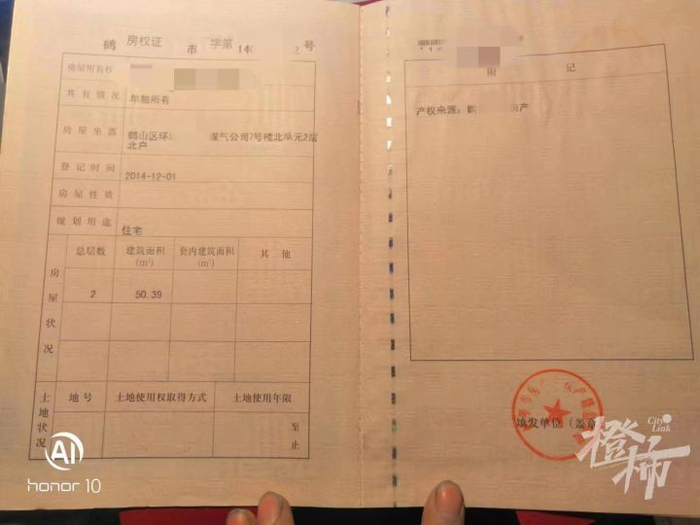 鹤 房权证 市 字第 140 2 号
房屋所有权
共有情况 单独所有
房屋坐落 鹤山区环 煤气公司7号楼北单元2层
北户
登记时间 2014-12-01
房屋性质
规划用途 住宅
房屋状况
总层数 建筑面积(m²) 套内建筑面积(m²) 其他
2 50.39
土地状况
地号 土地使用权取得方式 土地使用年限
至
止
附 记
产权来源：鹤 房产
填发单位（盖章
AI
honor 10
City Link
橙柿